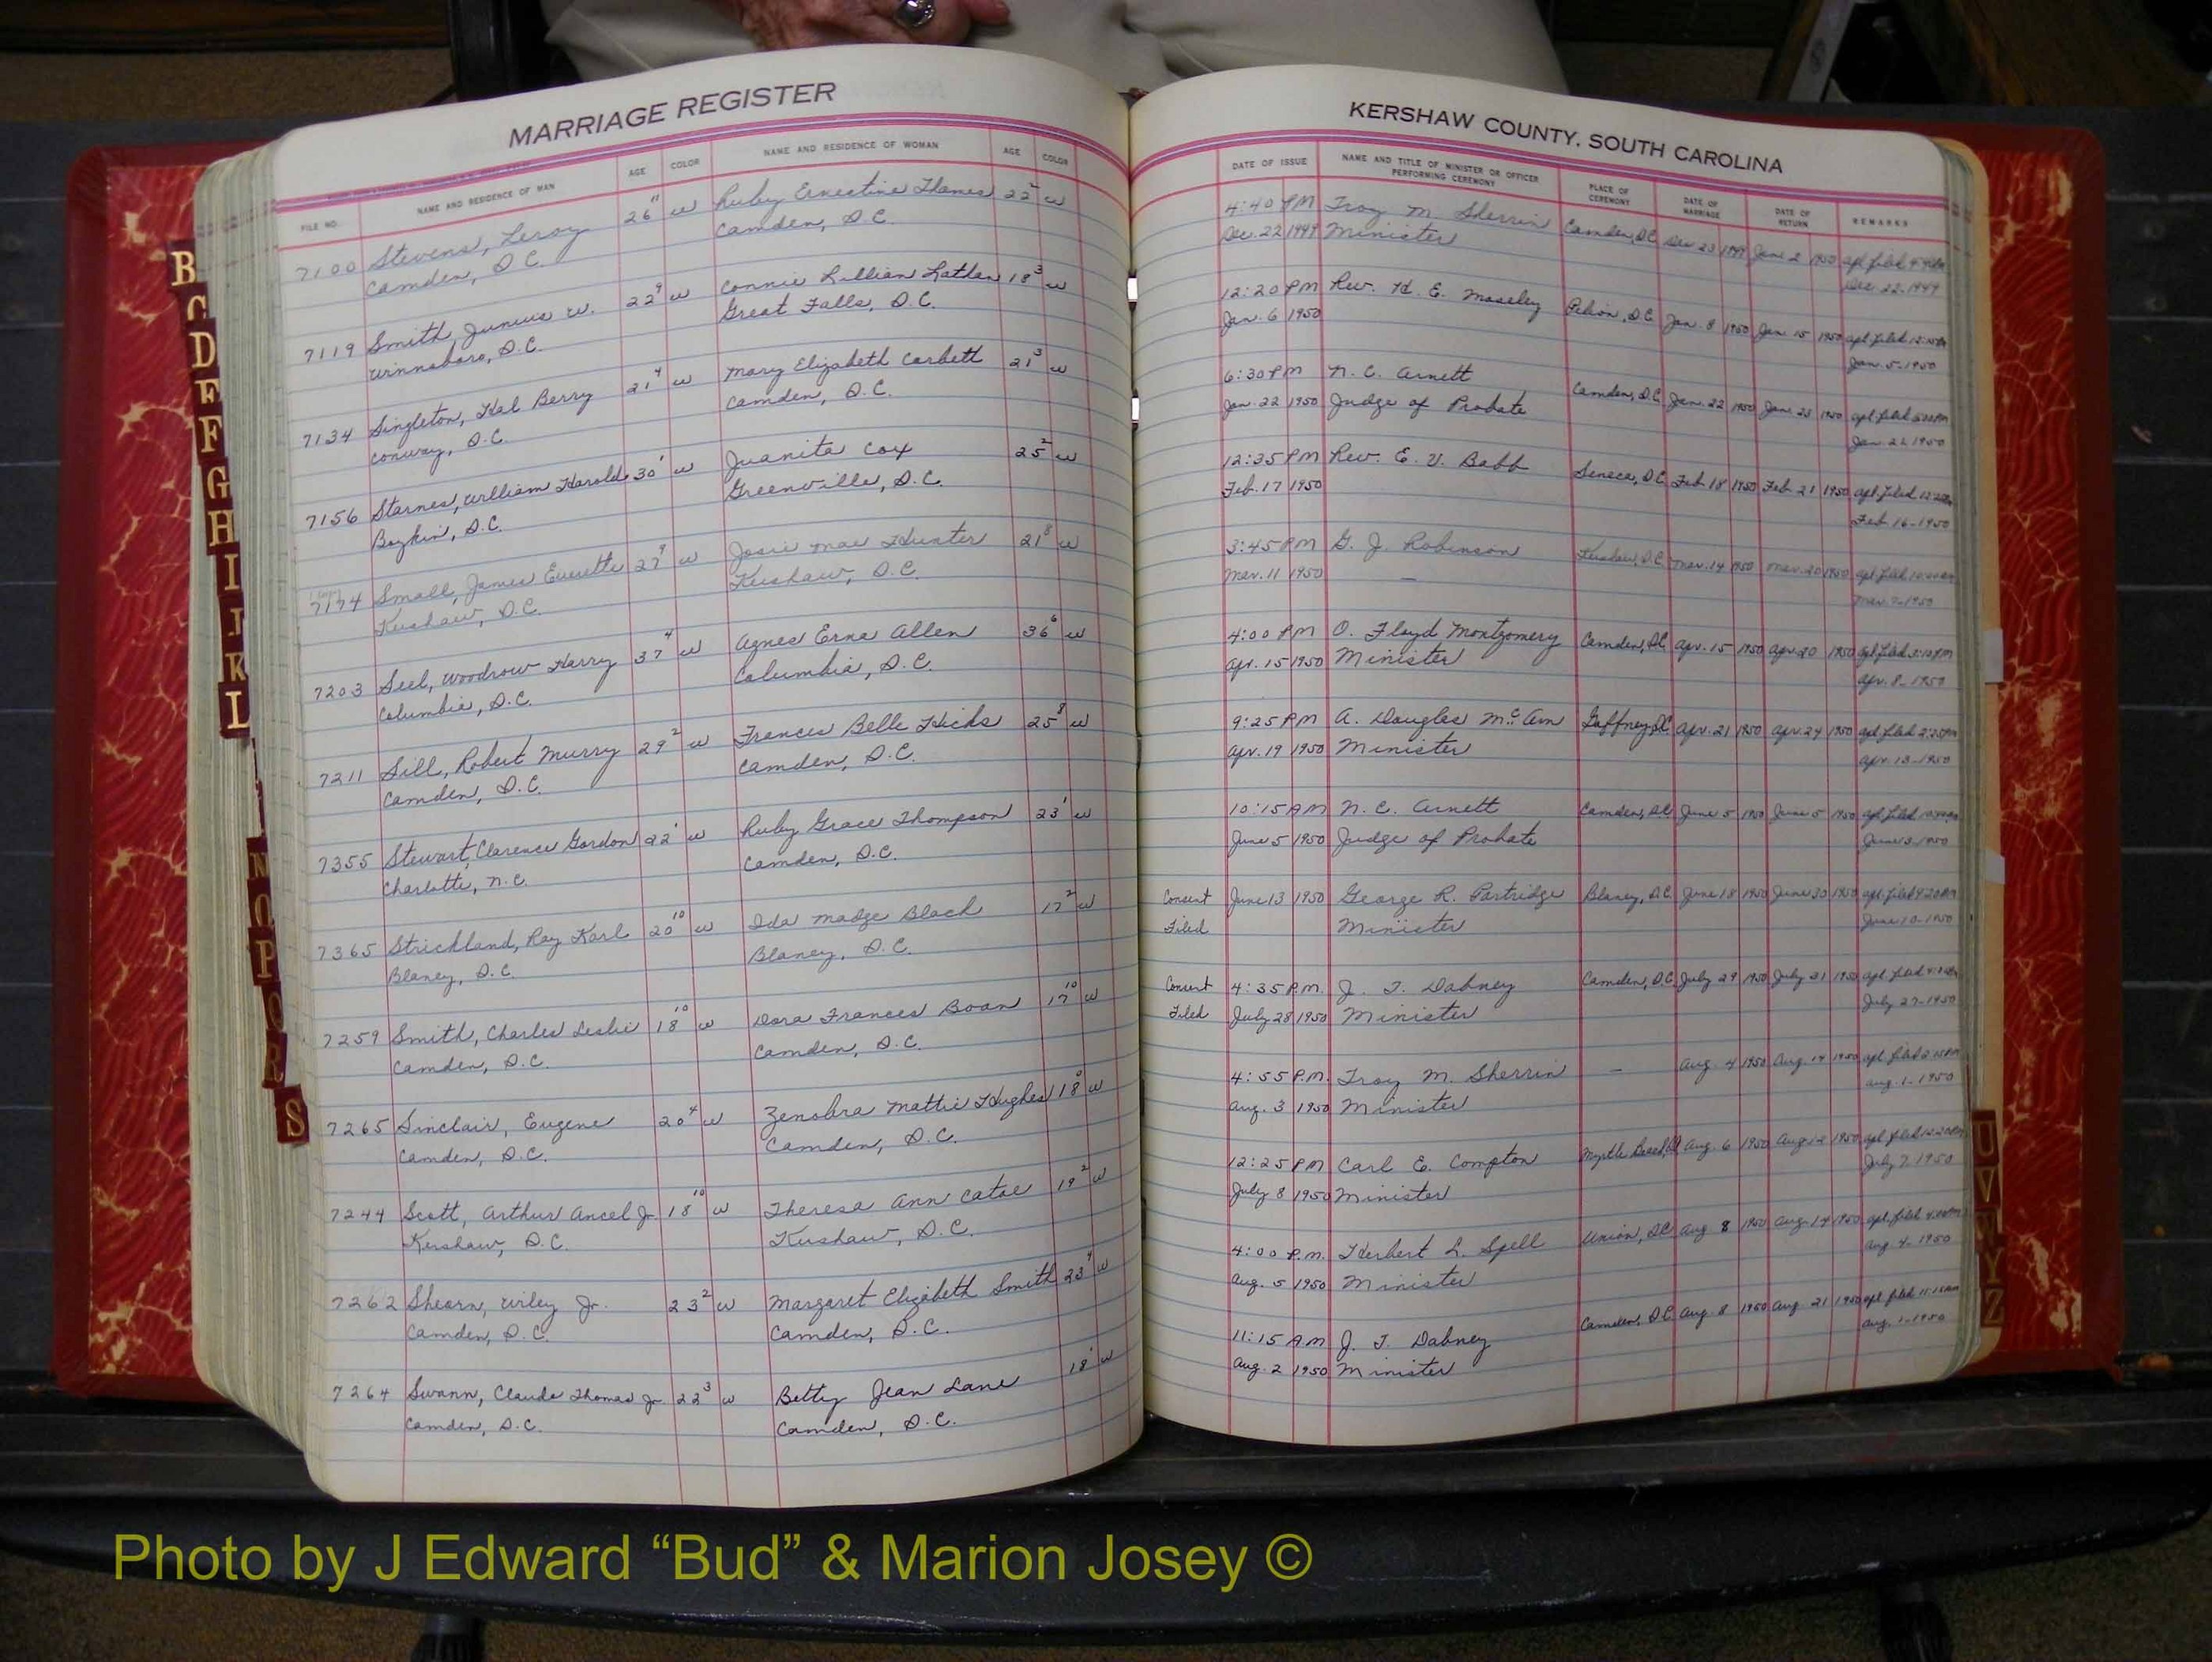 MARRIAGE REGISTER
FILE NO. NAME AND RESIDENCE OF MAN AGE COLOR NAME AND RESIDENCE OF WOMAN AGE COLOR
7100 Stevens, Leroy 26 11 W Ruby Ernestine Thames 22 2 W
Camden, S.C. Camden, S.C.
7119 Smith, Junius W. 22 9 W Connie Lillian Lathan 18 3 W
Winnsboro, S.C. Great Falls, S.C.
7134 Singleton, Hal Berry 21 4 W Mary Elizabeth Corbett 21 3 W
Conway, S.C. Camden, S.C.
7156 Starnes, William Harold 30 1 W Juanita Cox 25 2 W
Boykin, S.C. Greenville, S.C.
7174 Small, James Everette 27 9 W Josie Mae Hunter 21 8 W
Kershaw, S.C. Kershaw, S.C.
7203 Seel, Woodrow Harry 37 4 W Agnes Erna Allen 36 6 W
Columbia, S.C. Columbia, S.C.
7211 Sill, Robert Murry 29 2 W Frances Belle Hicks 25 8 W
Camden, S.C. Camden, S.C.
7355 Stewart, Clarence Gordon 22 1 W Ruby Grace Thompson 23 1 W
Charlotte, N.C. Camden, S.C.
7365 Strickland, Ray Karl 20 10 W Ida Madge Black 17 2 W
Blaney, S.C. Blaney, S.C.
7259 Smith, Charles Leslie 18 10 W Dora Frances Boan 17 10 W
Camden, S.C. Camden, S.C.
7265 Sinclair, Eugene 20 4 W Zenobra Mattie Hughes 18 0 W
Camden, S.C. Camden, S.C.
7244 Scott, Arthur Ancel Jr. 18 10 W Theresa Ann Catoe 19 2 W
Kershaw, S.C. Kershaw, S.C.
7262 Shearn, Wiley Jr. 23 2 W Margaret Elizabeth Smith 23 4 W
Camden, S.C. Camden, S.C.
7264 Swann, Claude Thomas Jr. 22 3 W Betty Jean Lane 18 1 W
Camden, S.C. Camden, S.C.
KERSHAW COUNTY, SOUTH CAROLINA
DATE OF ISSUE NAME AND TITLE OF MINISTER OR OFFICER PERFORMING CEREMONY PLACE OF CEREMONY DATE OF MARRIAGE DATE OF RETURN REMARKS
4:40 PM Troy M. Sherrin Camden, S.C. Dec 23 1949 Jan. 2 1950 apl. filed
Dec. 22 1949 Minister Dec. 22-1949
12:20 PM Rev. H. E. Moseley Pelion, S.C. Jan. 8 1950 Jan. 15 1950 apl. filed
Jan. 6 1950 Jan. 5-1950
6:30 PM N. C. Arnett Camden, S.C. Jan. 22 1950 Jan. 23 1950 apl. filed
Jan. 22 1950 Judge of Probate Jan. 21 1950
12:35 PM Rev. E. V. Babb Seneca, S.C. Feb 18 1950 Feb 21 1950 apl. filed
Feb. 17 1950 Feb. 16-1950
3:45 PM G. J. Robinson Kershaw, S.C. Mar. 14 1950 Mar. 20 1950 apl. filed
Mar. 11 1950 – Mar 7-1950
4:00 PM O. Floyd Montgomery Camden, S.C. Apr. 15 1950 Apr. 20 1950 apl. filed 3:10 PM
Apr. 15 1950 Minister Apr. 8-1950
9:25 PM A. Douglas McArn Gaffney, S.C. Apr. 21 1950 Apr. 24 1950 apl. filed 2:25 PM
Apr. 19 1950 Minister Apr. 13-1950
10:15 AM N. C. Arnett Camden, S.C. June 5 1950 June 5 1950 apl. filed
June 5 1950 Judge of Probate June 3-1950
Consent June 13 1950 George R. Partridge Blaney, S.C. June 18 1950 June 30 1950 apl. filed 4:20 PM
Filed Minister June 10-1950
Consent 4:35 P.M. J. T. Dabney Camden, S.C. July 29 1950 July 31 1950 apl. filed
Filed July 28 1950 Minister July 27-1950
4:55 P.M. Troy M. Sherrin – Aug. 4 1950 Aug. 14 1950 apl. filed 2:15 PM
Aug. 3 1950 Minister Aug. 1-1950
12:25 PM Carl E. Compton Myrtle Beach Aug. 6 1950 Aug. 1950 apl. filed 12:20 PM
July 8 1950 Minister July 7-1950
4:00 P.M. Herbert L. Spell Union, S.C. Aug 8 1950 Aug. 14 1950 apl. filed 4:00 PM
Aug. 5 1950 Minister Aug. 4-1950
11:15 AM J. T. Dabney Camden, S.C. Aug. 8 1950 Aug. 21 1950 apl. filed 11:15 AM
Aug. 2 1950 Minister Aug. 1-1950
B
C
D
E
F
G
H
I
J
K
L
N
O
P
Q
R
S
U
V
W
Y
Z
Photo by J Edward “Bud” & Marion Josey ©